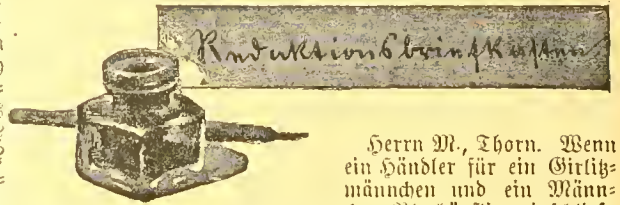 Redaktionsbriefkasten
Herrn M., Thorn. Wenn
ein Händler für ein Girlitz=
männchen und ein Männ=